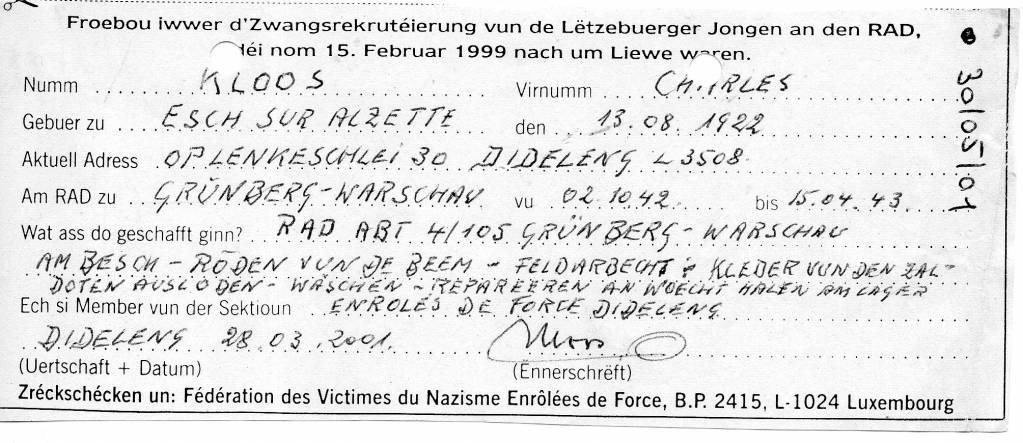 Froebou iwwer d'Zwangsrekrutéierung vun de Lëtzebuerger Jongen an den RAD,
déi nom 15. Februar 1999 nach um Liewe waren.
Numm KLOOS Virnumm CHARLES
Gebuer zu ESCH SUR ALZETTE den 13.08.1922
Aktuell Adress OP LENKESCHLEI 30 DIDELENG L 3508
Am RAD zu GRÜNBERG-WARSCHAU vu 02.10.42 bis 15.04.43.
Wat ass do geschafft ginn? RAD ABT 4/105 GRÜNBERG-WARSCHAU
AM BESCH - RÖDEN VUN DE BEEM - FELDARBECHT : KLEDER VUN DEN ZAL-
DOTEN AUSLODEN - WÄSCHEN - REPAREEREN AN WOECHT HALEN AM LAGER
Ech si Member vun der Sektioun ENROLÉS DE FORCE DIDELENG
DIDELENG 28.03.2001.
(Uertschaft + Datum) (Ennerschrëft)
Zréckschécken un: Fédération des Victimes du Nazisme Enrôlées de Force, B.P. 2415, L-1024 Luxembourg
30/05/01